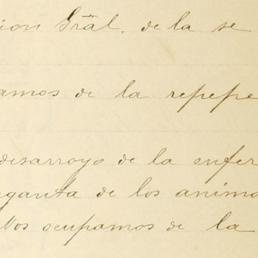 ion Gral. de la se
amos de la repepe
desarroyo de la enfer
ganta de los anima
Nos ocupamos de la